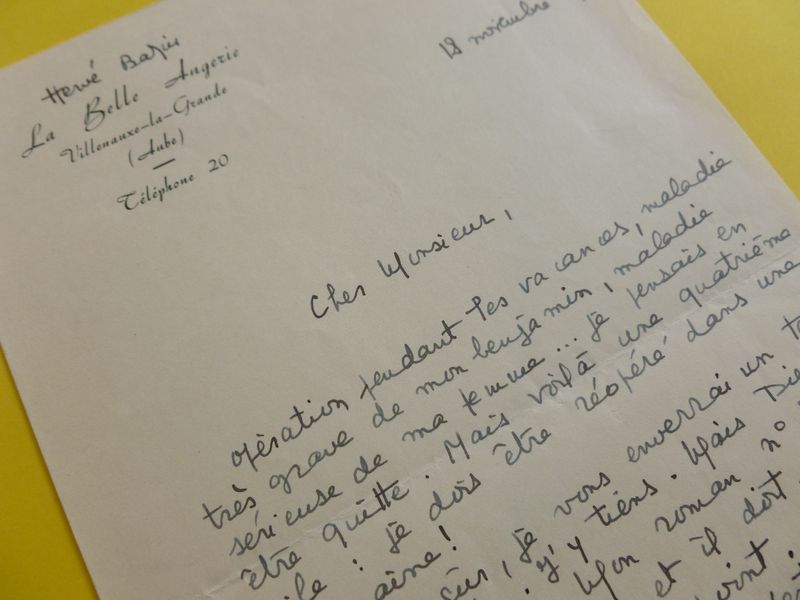 Hervé Bazin
La Belle Angerie
Villenauxe-la-Grande
(Aube)
Téléphone 20
18 novembre
Cher Monsieur,
opération pendant les vacances, maladie
très grave de mon benjamin, maladie
sérieuse de ma femme... je pensais en
être quitte. Mais voilà une quatrième
: je dois être réopéré dans une
aine!
, je vous enverrai un
j'y tiens. Mais
Mon roman n°
et il doit